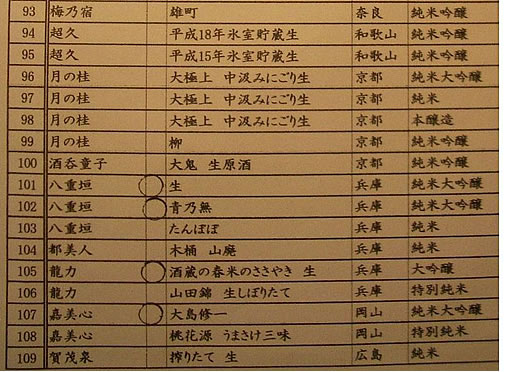 93 梅乃宿 雄町 奈良 純米吟醸
94 超久 平成18年氷室貯蔵生 和歌山 純米吟醸
95 超久 平成15年氷室貯蔵生 和歌山 純米吟醸
96 月の桂 大極上 中汲みにごり生 京都 純米大吟醸
97 月の桂 大極上 中汲みにごり生 京都 純米
98 月の桂 大極上 中汲みにごり生 京都 本醸造
99 月の桂 柳 京都 純米吟醸
100 酒呑童子 大鬼 生原酒 京都 純米吟醸
101 八重垣 生 兵庫 純米大吟醸
102 八重垣 青乃無 兵庫 純米大吟醸
103 八重垣 たんぽぽ 兵庫 純米
104 都美人 木桶 山廃 兵庫 純米
105 龍力 酒蔵の春米のささやき 生 兵庫 大吟醸
106 龍力 山田錦 生しぼりたて 兵庫 特別純米
107 嘉美心 大島修一 岡山 純米大吟醸
108 嘉美心 桃花源 うまさけ三味 岡山 特別純米
109 賀茂泉 搾りたて 生 広島 純米